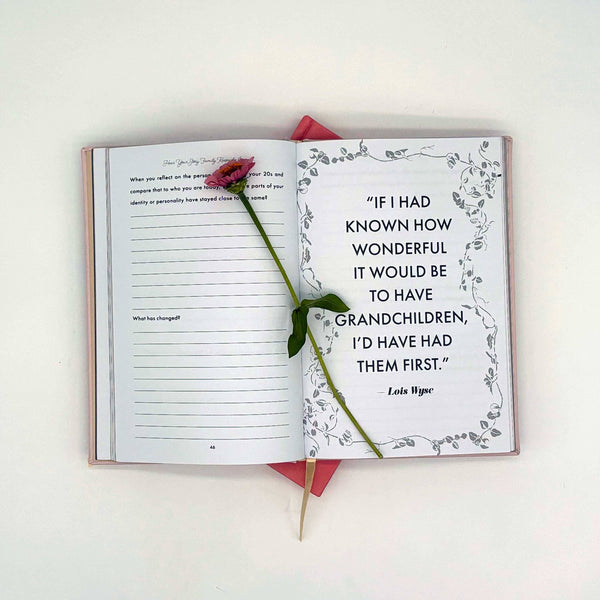 Hear Your Story Family Keepsake
When you reflect on the your 20s and
compare that to who you are today, parts of your
identity or personality have stayed close to same?
What has changed?
46
“IF I HAD
KNOWN HOW
WONDERFUL
IT WOULD BE
TO HAVE
GRANDCHILDREN,
I’D HAVE HAD
THEM FIRST.”
— Lois Wyse